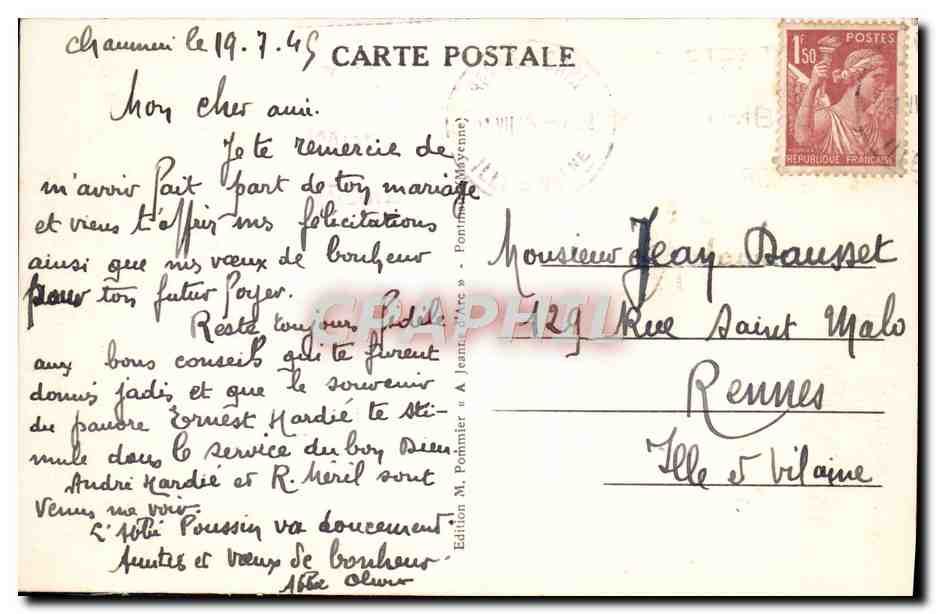 le 19.7.45
CARTE POSTALE
Mon cher ami.
Je te remercie de
m'avoir fait part de ton mariage
et viens t'offrir mes félicitations
ainsi que mes vœux de bonheur
pour ton futur foyer.
Reste toujours fidèle
aux bons conseils qui te furent
donnés jadis et que le souvenir
du pauvre Ernest Hardié te sti-
mule dans le service du bon Dieu.
André Hardié et R. Méril sont
venus me voir.
L'Abbé Poussin va doucement.
Amitiés et vœux de bonheur.
Abbé
Edition M. Pommier « A Jeanne d'Arc » - Pontmain (Mayenne)
1F50
POSTES
REPUBLIQUE FRANÇAISE
Monsieur Jean Dausset
129 Rue Saint Malo
Rennes
Ille et Vilaine
CPAPHIL